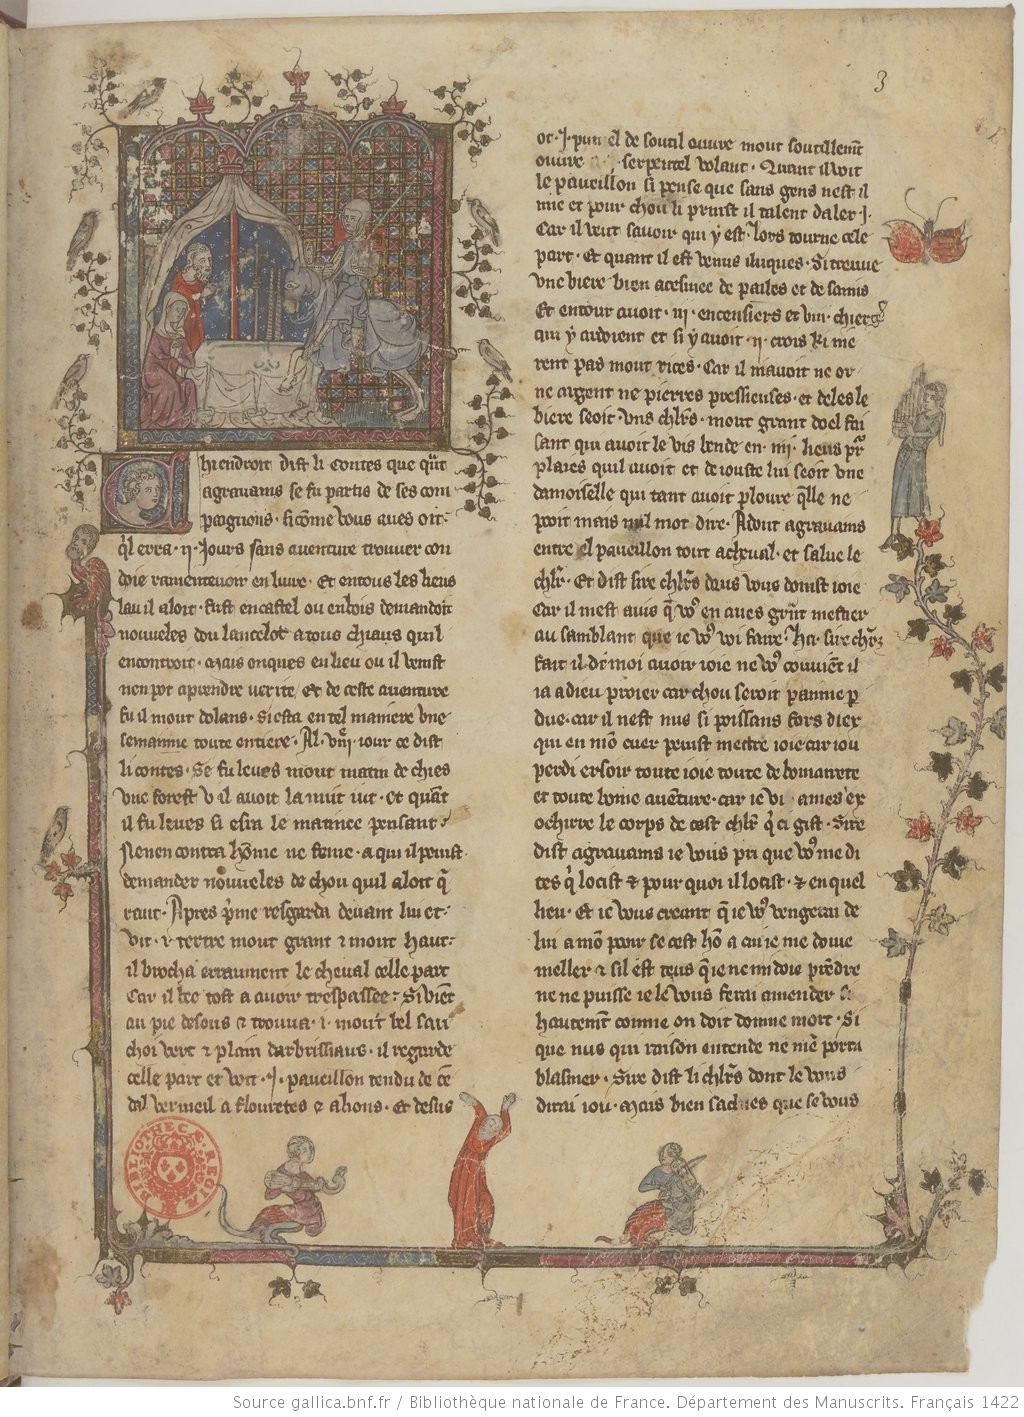 3
Chi endroit dist li contes que qñt
agravains se fu partis de ses com
paignons. si cõme vous aves oit.
q̃l erra .ij. jours sans aventure trouver con
doie ramentevoir en livre. et en tous les lieus
la u il aloit. fust en castel ou en bois demandoit
nouveles dou lancelot a tous chiaus quil
encontroit. Mais onques en lieu ou il venist
nen pot aprendre verite. Et de ceste aventure
fu il mout dolans. Si esta en tel maniere une
semainne toute entiere. Al .viijͤ. jour ce dist
li contes. Se fu leves mout matin de chies
une forest u il avoit la nuit iut. et quãt
il fu leves si esra le matinee pensant.
Nen encontra hõme ne feme. a qui il peuist
demander nouveles de chou quil aloit q̃
rant. Apres p̃me resgarda devant lui et
vit .i. tertre mout grant ⁊ mout haut.
il brocha erraument le cheval celle part
Car il bee tost a avoir trespassee. Si vient
au pie desous ⁊ trouva .i. mout bel sau
choi vert ⁊ plain darbrissiaus. il regarde
celle part et voit .J. paveillon tendu de cẽ
dal vermeil a flouretes ⁊ a lions. Et desus
ot .J. pumel de soutil ouvre mout soutillemt̃
ouvre serpentel volant. Quant il voit
le paveillon si pense que sans gens nest il
mie et pour chou li prinst il talent daler i.
Car il veut savoir qui y est. lors tourne cele
part. Et quant il est venus iluques. Si treuve
une biere bien acesmee de pailes et de samis
Et entour avoit .iij. encensiers et viij. chierges
qui y ardoient et si y avoit .ij. crois ki nie
rent pas mout rices. Car il ni avoit ne or
ne argent ne pierres pressieuses. et deles le
biere seoit uns chl̃rs. mout grant doel fai
sant qui avoit le vis bende en .iiij. lieus pr̃
plaies quil avoit et de iouste lui seoit une
damoiselle qui tant avoit ploure q̃lle ne
pooit mais nul mot dire. Adont agravains
entre el paveillon tout a cheval. et salue le
chl̃r. Et dist sire chl̃rs deus vous doinst ioie
Car il mest avis q̃ vꝰ en aves grãt mestier
au samblant que ie vꝰ voi faire. ha. sire chl̃r.
fait il di moi avoir ioie ne vꝰ couvient il
ia a dieu proier car chou seroit painne p̱
due. car il nest nus si poissans fors diex
qui en mõ cuer peuist mettre ioie car iou
perdi ersoir toute ioie toute de bonairete
et toute bonne avẽture. car ie vi a mes ex
ochirre le corps de cest chl̃r q̃ ci gist. Sire
dist agravains ie vous pri que vꝰ me di
tes q̃ locist ⁊ pour quoi il locist. ⁊ en quel
lieu. Et ie vous creant q̃ ie vꝰ vengerai de
lui a mõ pooir se cest hõ a cui ie me doive
meller ⁊ sil est teus q̃ ie ne mi doie prẽdre
ne ne puisse ie le vous ferai amender
hautemt̃ comme on doit domne mort. Si
que nus qui raison entende ne mẽ porra
blasmer. Sire dist li chl̃rs dont le vous
dirai iou. Mais bien sachies que se vous
BIBLIOTHECÆ REGIÆ
Source gallica.bnf.fr / Bibliothèque nationale de France. Département des Manuscrits. Français 1422